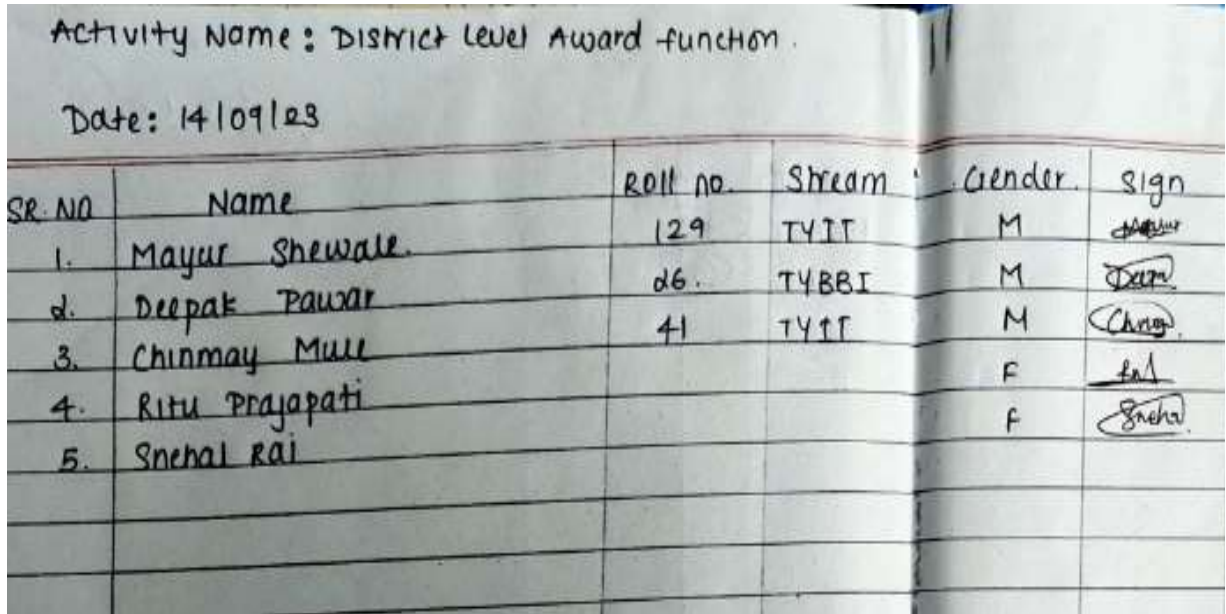 Activity Name: District Level Award function.
Date: 14/09/23
SR.NO Name Roll no. Stream Gender. Sign
1. Mayur Shewale. 129 TYIT M
2. Deepak Pawar 26. TYBBI M
3. Chinmay Mule 41 TYIT M
4. Ritu Prajapati F
5. Snehal Rai F Sneha